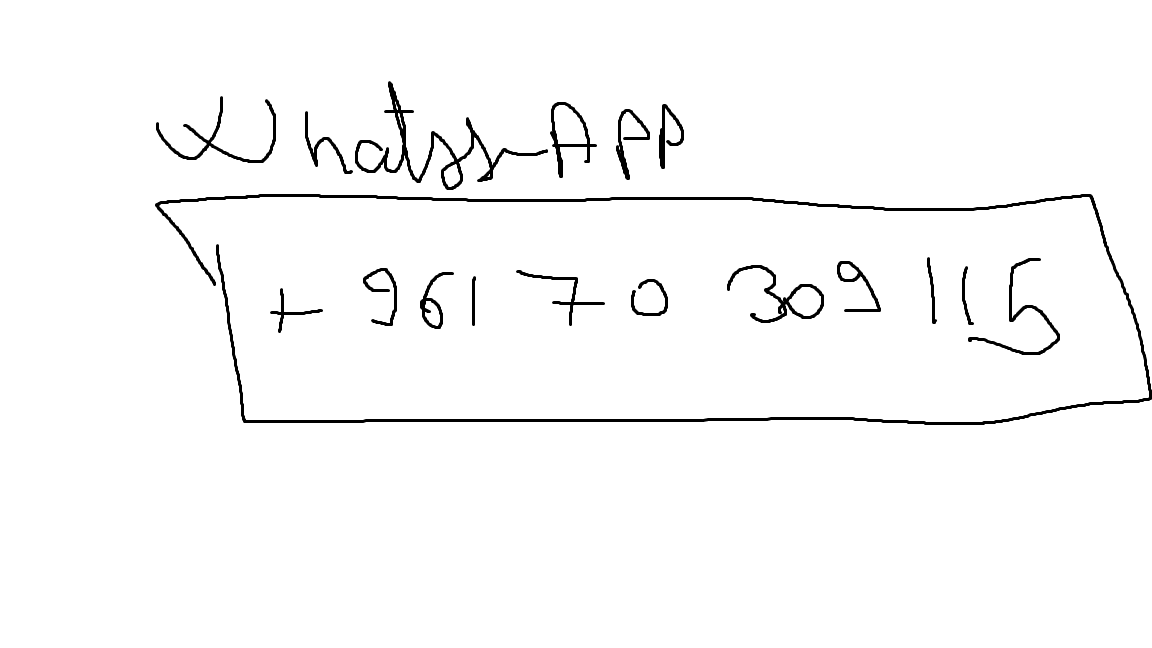 Whatss-App
+ 961 70 309 115